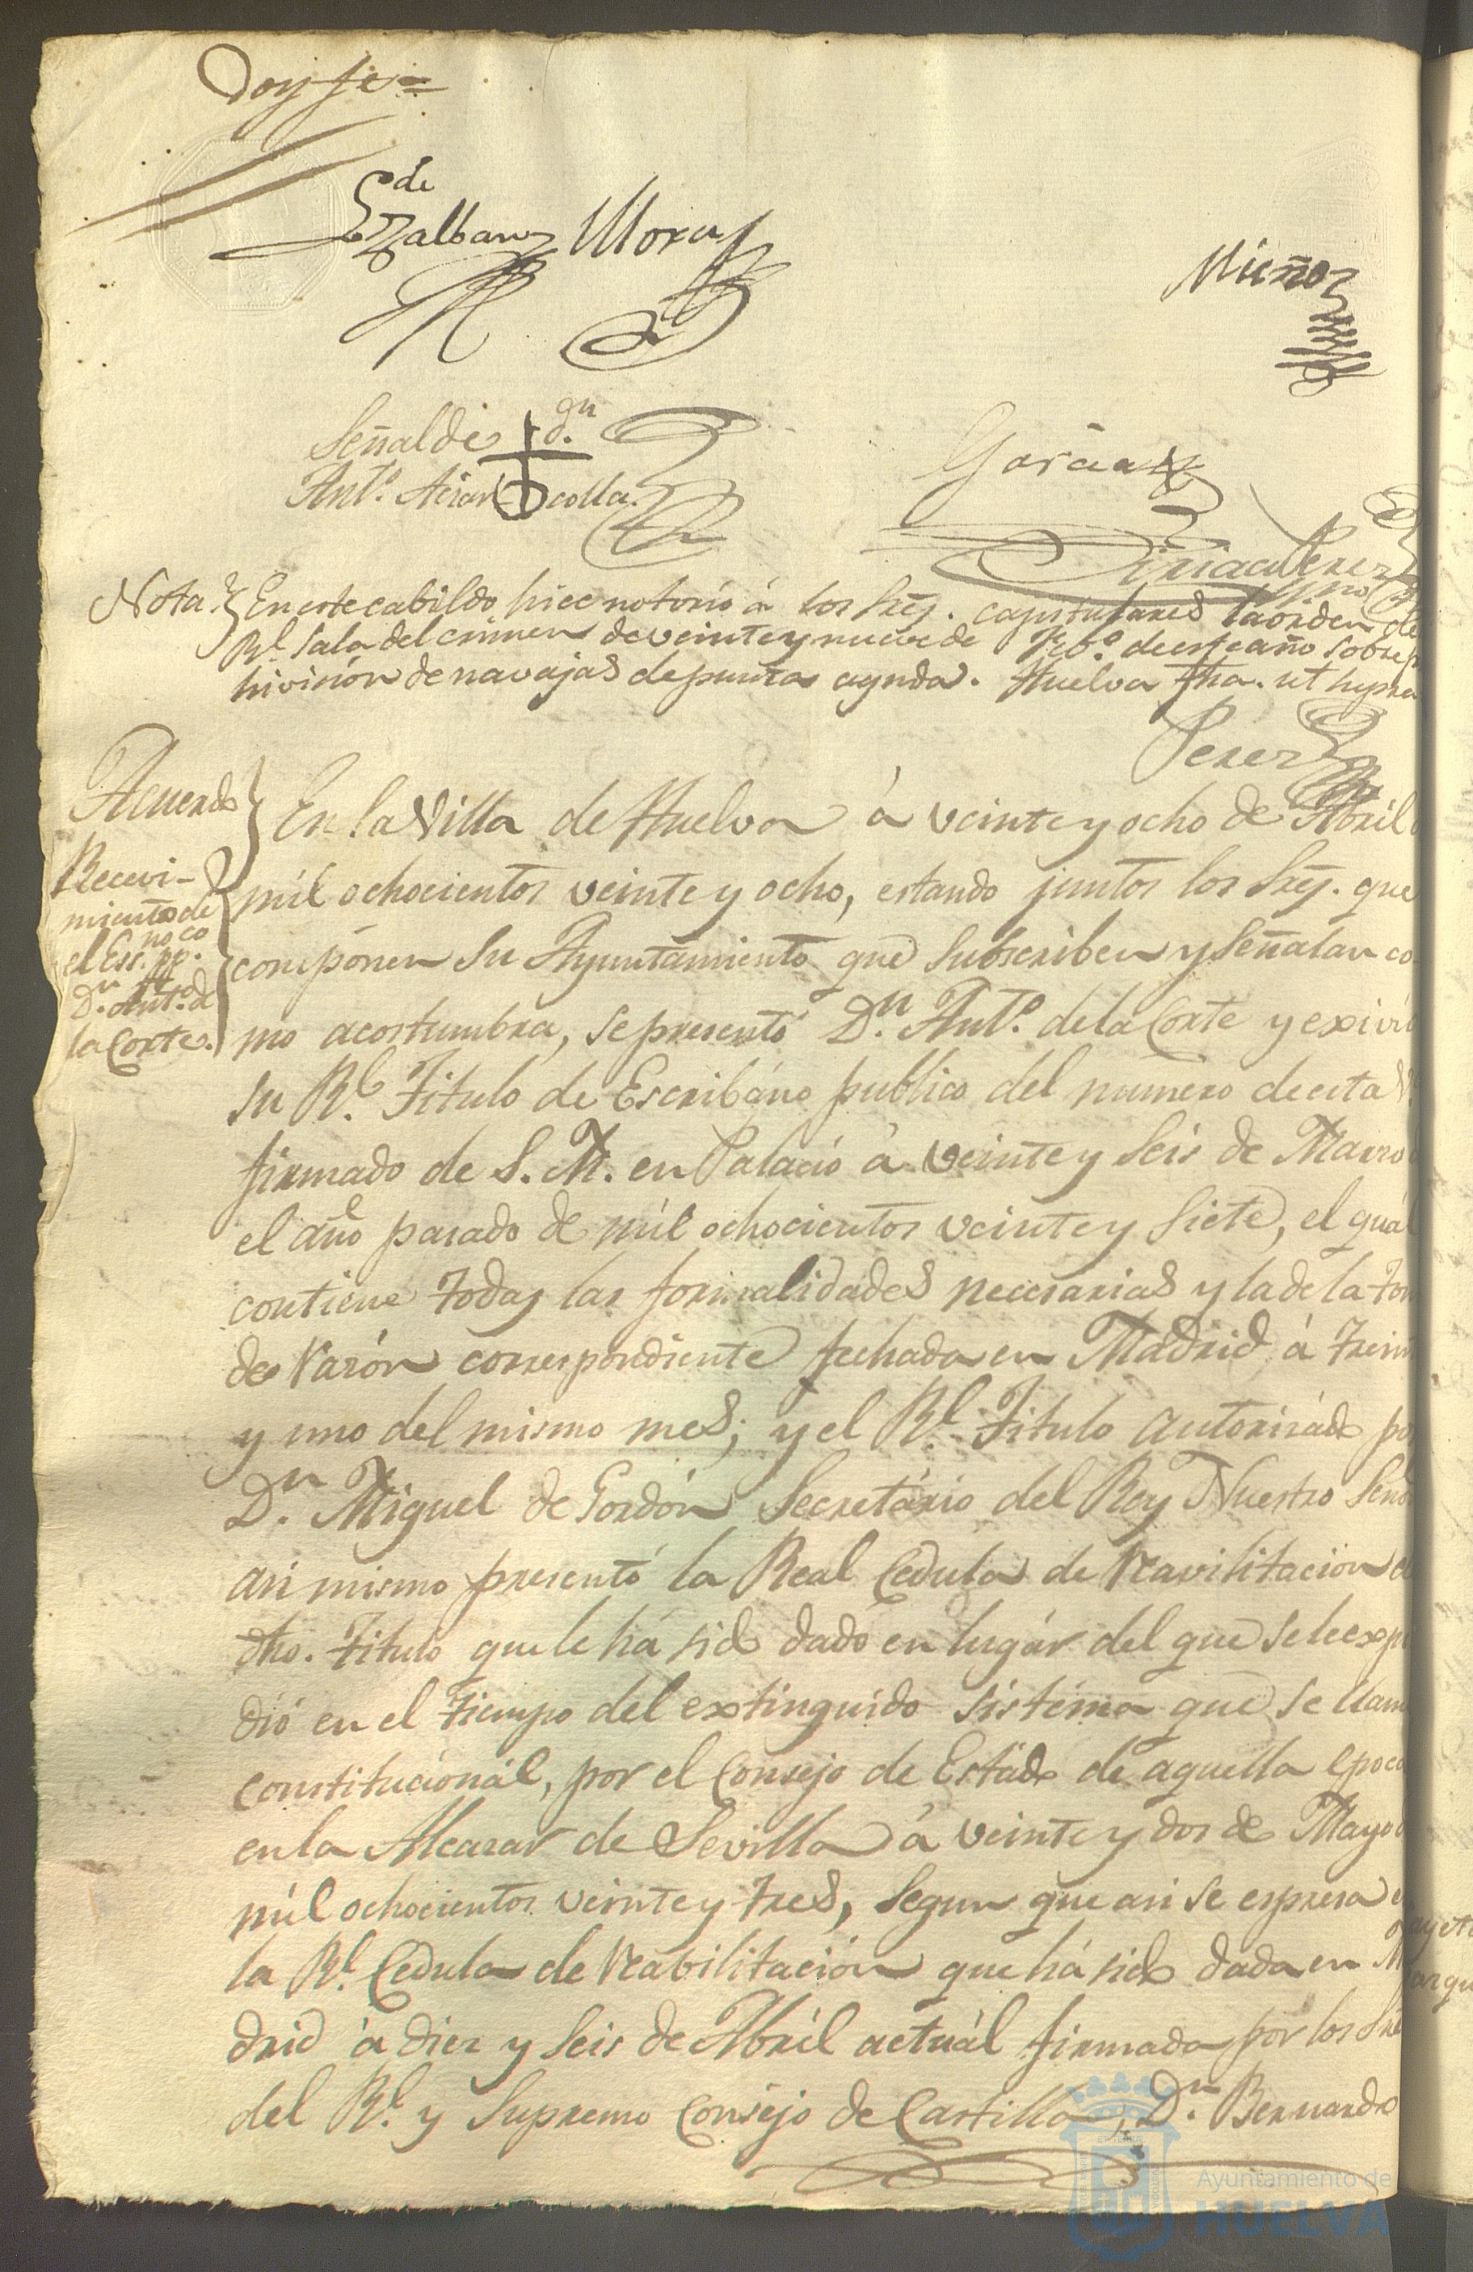 Doy fe =
de
Zalbano Mora
Muñoz
Señal de + Dn.
Anto. Aciar colla.
Garcia
Ciriaco Perez
Nota. En este cabildo hice notorio á los Sres. capitulares la orden de
Rl. Sala del crimen de veinte y nueve de Febo. de este año sobre p
hivición de navajas de punta aguda. Huelva fha. ut supra
Perez
Acuerdo
En la Villa de Huelva á veinte y ocho de Abril
Recevi-
miento de
el Essno. ppco.
Dn. Anto. de
la Corte.
mil ochocientos veinte y ocho, estando juntos los Sres. que
componen su Ayuntamiento que subscriben y señalan co-
mo acostumbra, se presentó Dn. Anto. de la Corte y exivió
su Rl. Titulo de Escribáno publico del numero de esta V.
firmado de S. M. en Palacio á veinte y seis de Marzo
el año pasado de mil ochocientos veinte y siete, el quál
contiene todas las formalidades necesarias y la de la tom
de razón correspondiente fechada en Madrid á trein
y uno del mismo mes; y el Rl. Titulo autorizádo po
Dn. Miguel de Gordón Secretário del Rey Nuestro Seño
asi mismo presentó la Real Cedula de reavilitación d
dho. Titulo que le há sido dado en lugár del que se le exp
dió en el tiempo del extinguido sistéma que se llam
constitucionál, por el Consejo de Estádo de aquella epoca
en la Alcazar de Sevilla á veinte y dos de Mayo d
mil ochocientos veinte y tres, segun que asi se espresa e
la Rl. Cedula de reabilitación que há sido dada en M
drid á diez y seis de Abril actuál firmada por los Sre
del Rl. y Supremo Consejo de Castilla, Dn. Bernardo
Ayuntamiento de
HUELVA